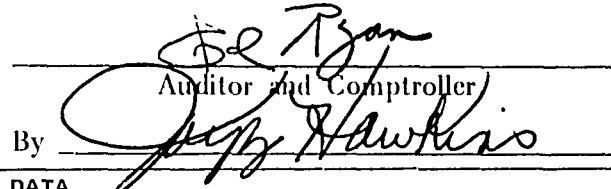 Ed Ryan
Auditor and Comptroller
By Judy Hawkins
DATA